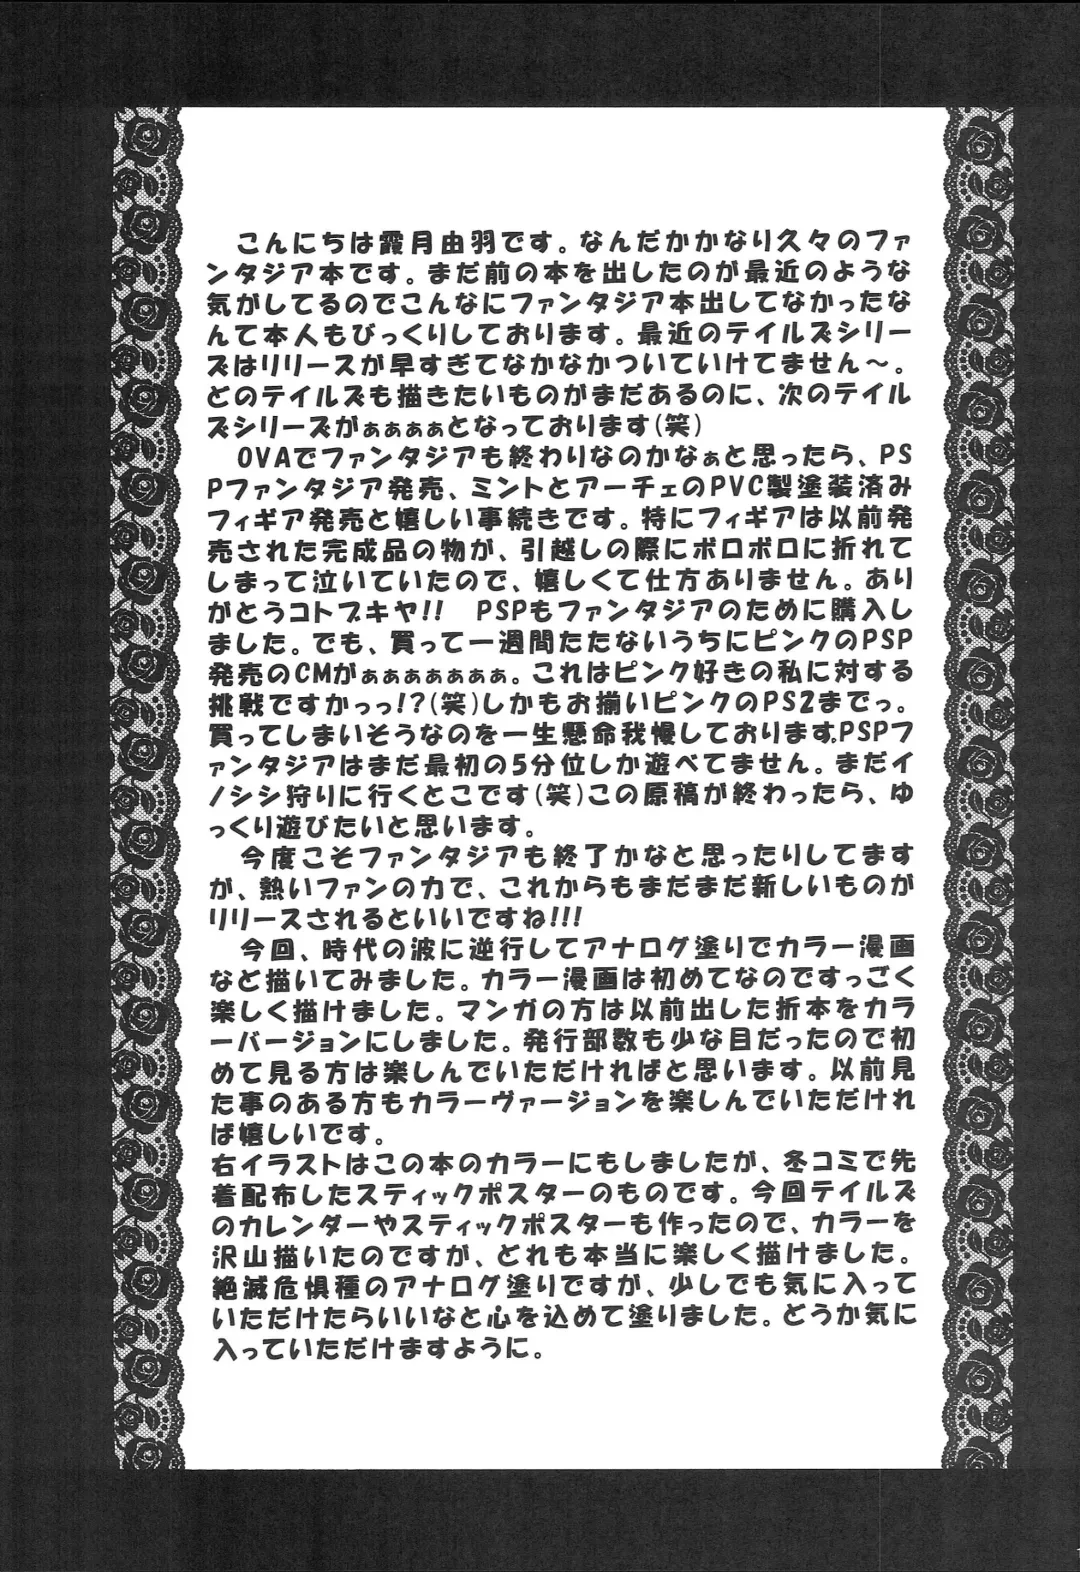 こんにちは霞月由羽です。なんだかかなり久々のファ
ンタジア本です。まだ前の本を出したのが最近のような
気がしてるのでこんなにファンタジア本出してなかったな
んて本人もびっくりしております。最近のテイルズシリー
ズはリリースが早すぎてなかなかついていけてません～。
どのテイルズも描きたいものがまだあるのに、次のテイル
ズシリーズがぁぁぁぁとなっております(笑)
OVAでファンタジアも終わりなのかなぁと思ったら、PS
Pファンタジア発売、ミントとアーチェのPVC製塗装済み
フィギア発売と嬉しい事続きです。特にフィギアは以前発
売された完成品の物が、引越しの際にボロボロに折れて
しまって泣いていたので、嬉しくて仕方ありません。あり
がとうコトブキヤ!!　PSPもファンタジアのために購入し
ました。でも、買って一週間たたないうちにピンクのPSP
発売のCMがぁぁぁぁぁぁぁ。これはピンク好きの私に対する
挑戦ですかっっ!?(笑)しかもお揃いピンクのPS2までっ。
買ってしまいそうなのを一生懸命我慢しております。PSPフ
ァンタジアはまだ最初の5分位しか遊べてません。まだイ
ノシシ狩りに行くとこです(笑)この原稿が終わったら、ゆ
っくり遊びたいと思います。
今度こそファンタジアも終了かなと思ったりしてます
が、熱いファンの力で、これからもまだまだ新しいものが
リリースされるといいですね!!!
今回、時代の波に逆行してアナログ塗りでカラー漫画
など描いてみました。カラー漫画は初めてなのですっごく
楽しく描けました。マンガの方は以前出した折本をカラ
ーバージョンにしました。発行部数も少な目だったので初
めて見る方は楽しんでいただければと思います。以前見
た事のある方もカラーヴァージョンを楽しんでいただけれ
ば嬉しいです。
右イラストはこの本のカラーにもしましたが、冬コミで先
着配布したスティックポスターのものです。今回テイルズ
のカレンダーやスティックポスターも作ったので、カラーを
沢山描いたのですが、どれも本当に楽しく描けました。
絶滅危惧種のアナログ塗りですが、少しでも気に入って
いただけたらいいなと心を込めて塗りました。どうか気に
入っていただけますように。